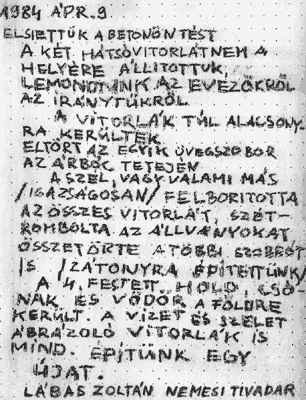 1984 ÁPR. 9
ELSIETTÜK A BETONÖNTÉST
A KÉT HÁTSÓVITORLÁT NEM A
HELYÉRE ÁLLITOTTUK,
LEMONDTUNK AZ EVEZŐKRŐL
AZ IRÁNYTŰKRŐL
A VITORLÁK TÚL ALACSONY-
RA KERÜLTEK
ELTÖRT AZ EGYIK ÜVEGSZOBOR
AZ ÁRBOC TETEJÉN
A SZÉL, VAGY VALAMI MÁS
/IGAZSÁGOSAN/ FELBORITOTTA
AZ ÖSSZES VITORLÁT, SZÉT-
ROMBOLTA AZ ÁLLVÁNYOKAT
ÖSSZETÖRTE A TÖBBI SZOBRÓT
IS /ZÁTONYRA ÉPITETTÜNK/
A 4 FESTETT HOLD, CSÓ-
NAK ÉS VÖDÖR A FÖLDRE
KERÜLT. A VIZET ÉS SZELET
ÁBRÁZOLÓ VITORLÁK IS
MIND. ÉPÍTÜNK EGY
ÚJAT.
LÁBAS ZOLTÁN NEMESI TIVADAR